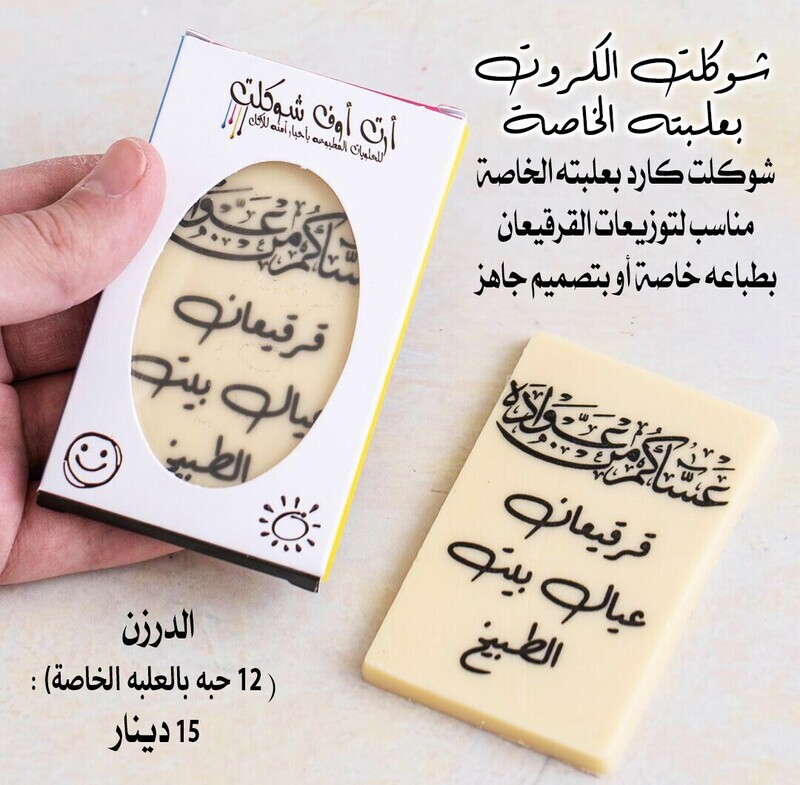 شوكلت الكروت
بعلبته الخاصة
شوكلت كارد بعلبته الخاصة
مناسب لتوزيعات القرقيعان
بطباعه خاصة أو بتصميم جاهز
أرت أوف شوكلت
للحلويات المطبوعه بأحبار آمنه للأكل
عساكم من عواده
قرقيعان
عيال بيت
الطبيخ
عساكم من عواده
قرقيعان
عيال بيت
الطبيخ
الدرزن
( 12 حبه بالعلبه الخاصة) :
15 دينار